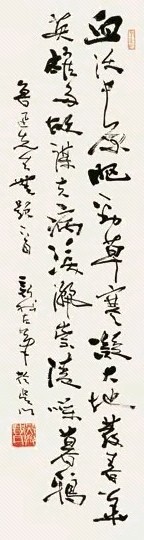 血沃中原肥劲草寒凝大地发春华
英雄多故谋夫病泪洒崇陵噪暮鸦
鲁迅先生无题一首